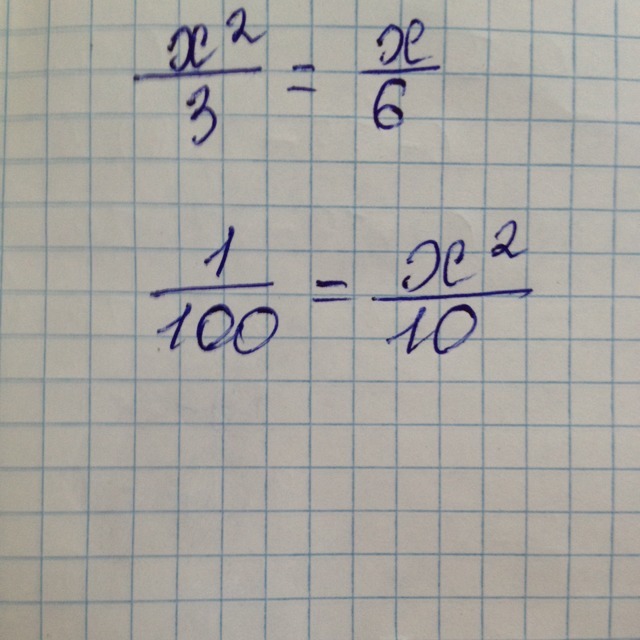 x²/3 = x/6
1/100 = x²/10